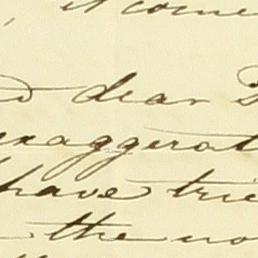 , it come
dear
exaggerat
have trie
the